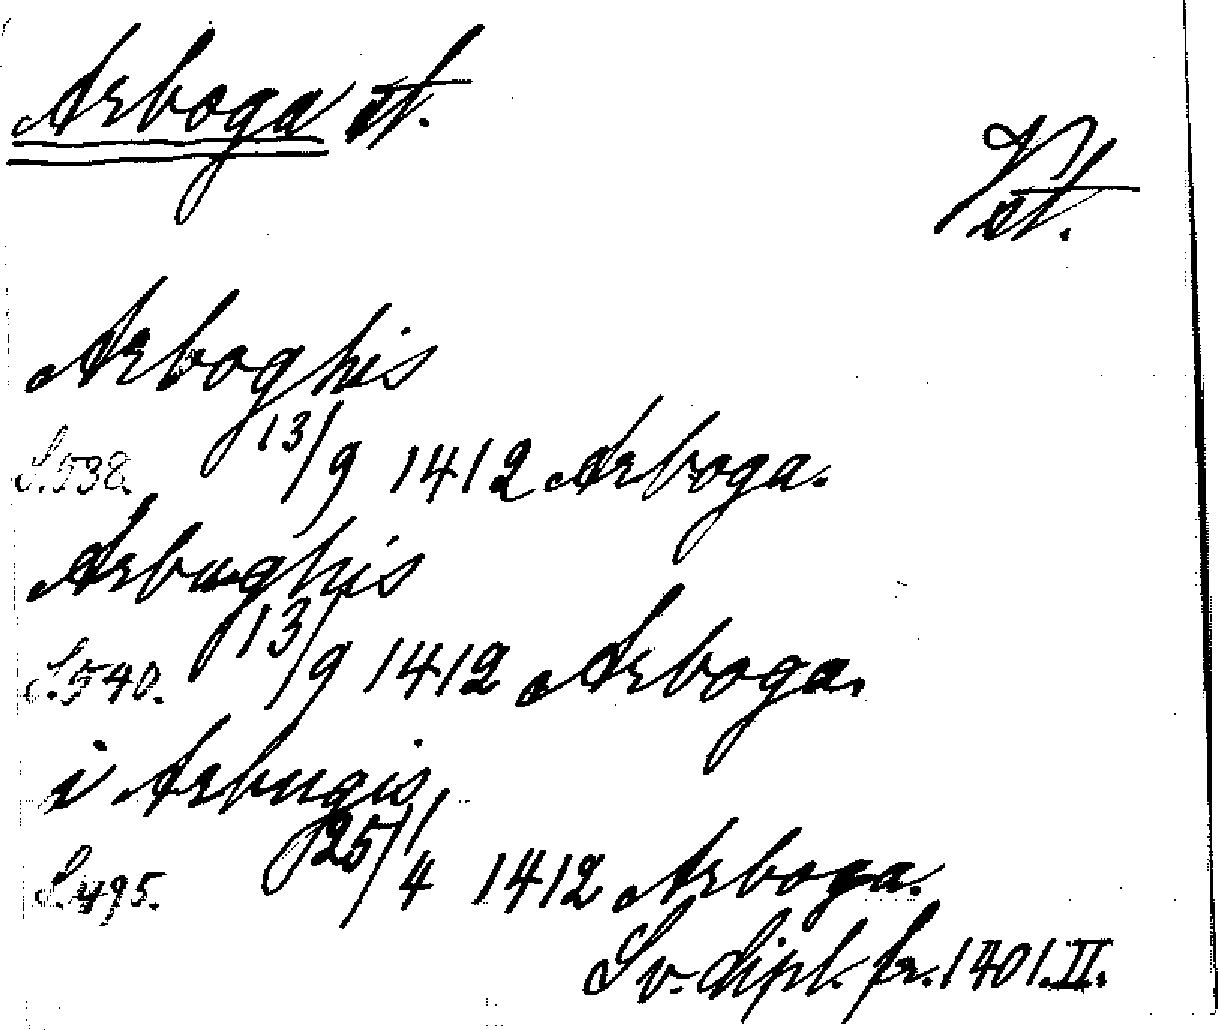 Arboga st.
Vst.
Arboghis
S. 538. 13/9 1412 Arboga.
Arbughis
S. 540. 13/9 1412 Arboga.
i Arbugis
S. 495. 25/4 1412 Arboga.
Sv. dipl. fr. 1401. II.